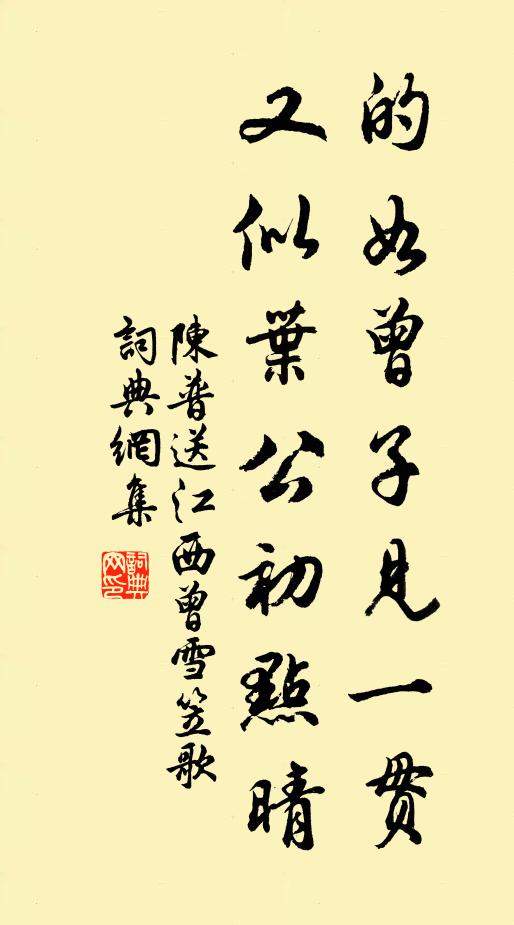 的如曾子見一貫
又似葉公初點睛
陳普送江西曾雪笠歌
詞典網集
詞典网印